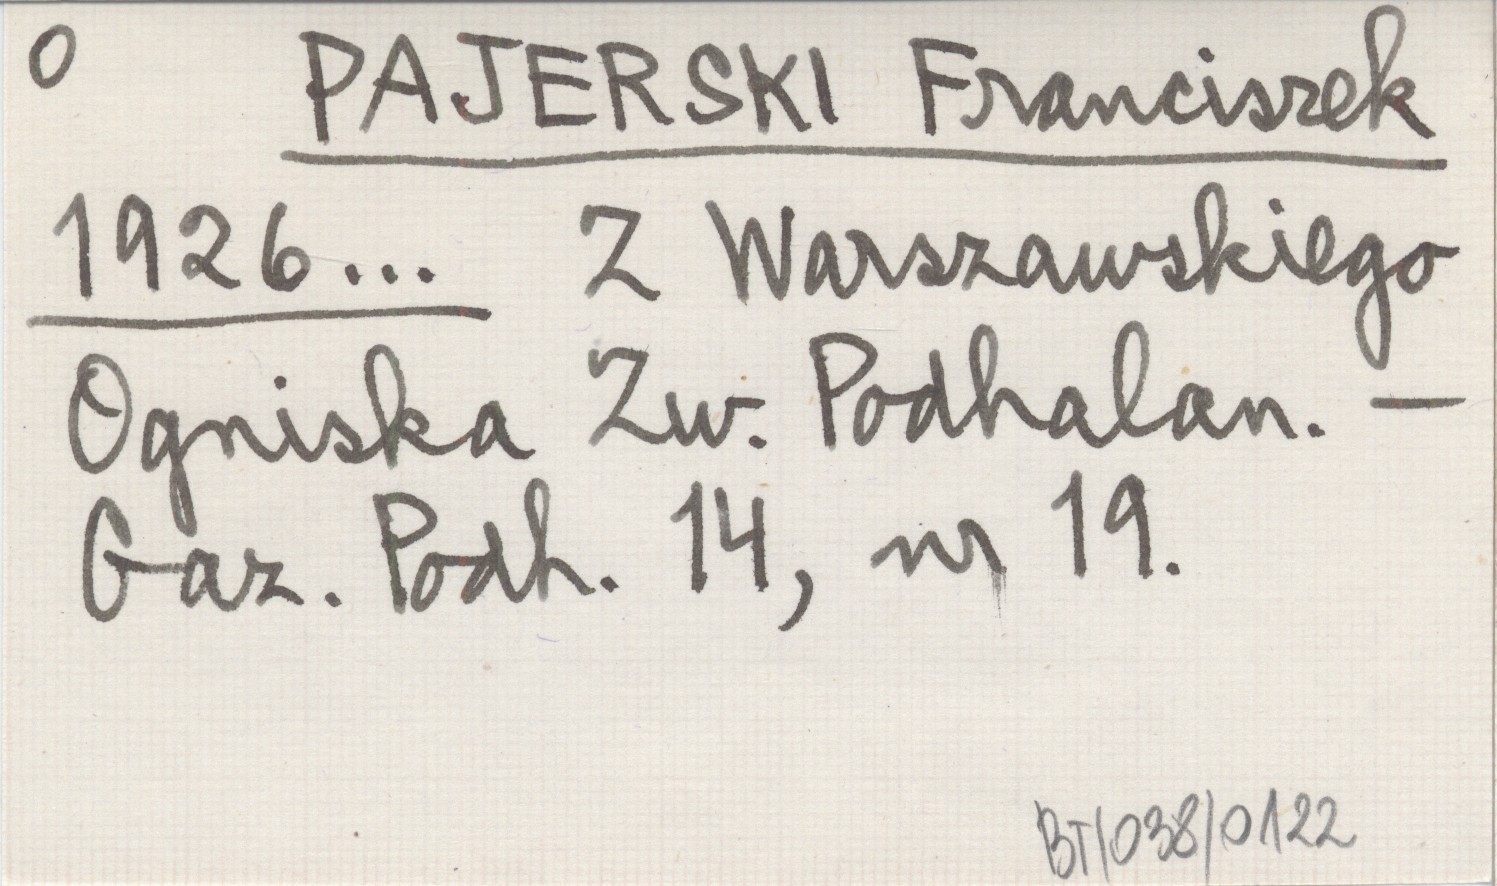 O PAJERSKI Franciszek
1926... Z Warszawskiego
Ogniska Zw. Podhalan. –
Gaz. Podh. 14, nr 19.
BT/038/0122